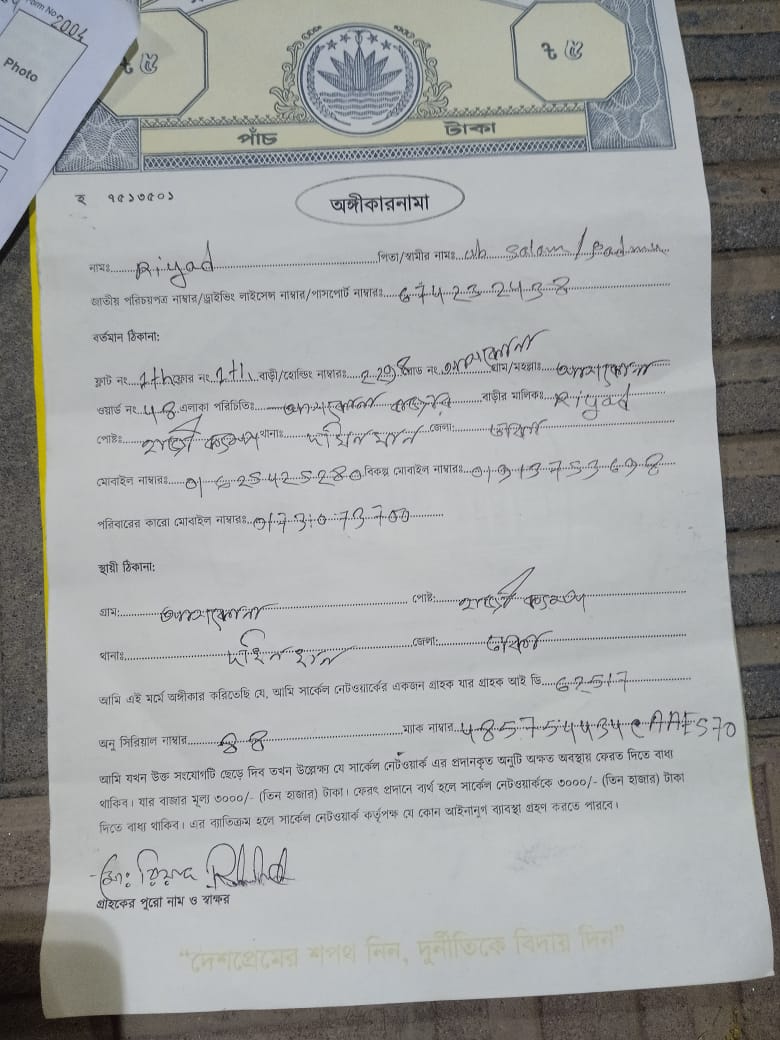 Form No 2004
Photo
৳ ৫
৳ ৫
পাঁচ টাকা
ব ৭৫১৩৫০১
অঙ্গীকারনামা
নামঃ Riyad পিতা/স্বামীর নামঃ Ab Salam /
জাতীয় পরিচয়পত্র নাম্বার/ড্রাইভিং লাইসেন্স নাম্বার/পাসপোর্ট নাম্বারঃ 6742324538
বর্তমান ঠিকানা:
ফ্লাট নং 7th ফ্লোর নং 7th বাড়ী/হোল্ডিং নাম্বারঃ রোড নং গ্রাম/মহল্লাঃ
ওয়ার্ড নং 48 এলাকা পরিচিতিঃ বাড়ীর মালিকঃ Riyad
পোষ্টঃ থানাঃ জেলা:
মোবাইল নাম্বারঃ 01625425280 বিকল্প মোবাইল নাম্বারঃ 01913753698
পরিবারের কারো মোবাইল নাম্বারঃ
স্থায়ী ঠিকানা:
গ্রাম: পোষ্ট:
থানাঃ জেলা:
আমি এই মর্মে অঙ্গীকার করিতেছি যে, আমি সার্কেল নেটওয়ার্কের একজন গ্রাহক যার গ্রাহক আই ডি 62517
অনু সিরিয়াল নাম্বার 88 ম্যাক নাম্বার
আমি যখন উক্ত সংযোগটি ছেড়ে দিব তখন উল্লেক্ষ্য যে সার্কেল নেটওয়ার্ক এর প্রদানকৃত অনুটি অক্ষত অবস্থায় ফেরত দিতে বাধ্য
থাকিব। যার বাজার মূল্য ৩০০০/- (তিন হাজার) টাকা। ফেরৎ প্রদানে ব্যর্থ হলে সার্কেল নেটওয়ার্ককে ৩০০০/- (তিন হাজার) টাকা
দিতে বাধ্য থাকিব। এর ব্যতিক্রম হলে সার্কেল নেটওয়ার্ক কর্তৃপক্ষ যে কোন আইনানুগ ব্যবস্থা গ্রহণ করতে পারবে।
মো: রিয়াদ
গ্রাহকের পুরো নাম ও স্বাক্ষর
"দেশপ্রেমের শপথ নিন, দুর্নীতিকে বিদায় দিন"